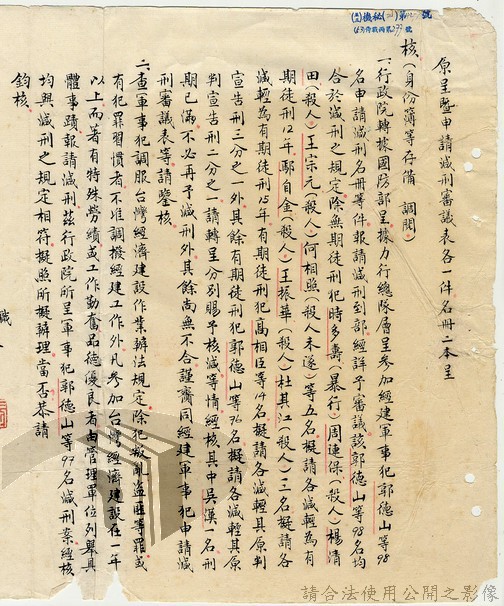 (41)機秘(乙)第 號
原呈暨申請減刑審議表各一件名冊二本呈
核(身份簿等存備 調閱)
一、行政院轉據國防部呈據力行總隊層呈參加經建軍事犯郭德山等98
名申請減刑名冊等件報請減刑到部經詳予審議該郭德山等98名均
合於減刑之規定除無期徒刑犯時多壽(暴行)周連保(殺人)楊清
田(殺人)王宗元(殺人)何相照(殺人未遂)等五名擬請各減輕為有
期徒刑12年鄢自金(殺人)王振華(殺人)杜其江(殺人)三名擬請各
減輕為有期徒刑15年有期徒刑犯高相臣等14名擬請各減輕其原判
宣告刑三分之一外其餘有期徒刑犯郭德山等76名擬請各減輕其原
判宣告刑二分之一請轉呈分別賜予核減等情經核其中吳漢一名刑
期已滿不必再予減刑外其餘尚無不合謹齎同經建軍事犯申請減
刑審議表等請鑒核
二、查軍事犯調服台灣經濟建設作業辦法規定除犯叛亂盜匪等罪或
有犯罪習慣者不准調撥經建工作外凡參加台灣經濟建設在一年
以上而著有特殊勞績或工作勤奮品德優良者由管理單位列舉具
體事蹟報請減刑茲行政院所呈軍事犯郭德山等97名減刑案經核
均與減刑之規定相符擬照所擬辦理當否恭請
鈞核
職
請合法使用公開之影像